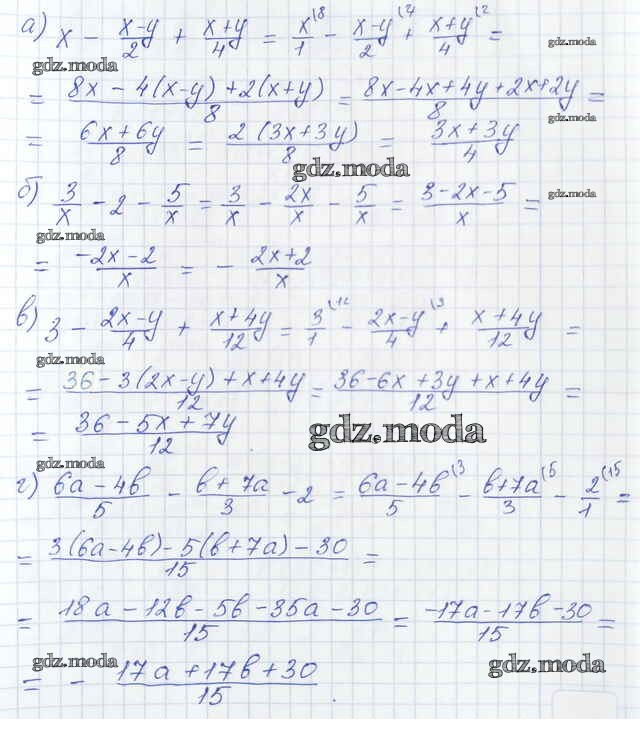 а) x − (x−y)/2 + (x+y)/4 = x/1 (8 − (x−y)/2 (4 + (x+y)/4 (2 = gdz.moda
gdz.moda
= (8x − 4(x−y) + 2(x+y))/8 = (8x−4x+4y+2x+2y)/8 =
gdz.moda
= (6x+6y)/8 = (2(3x+3y))/8 = (3x+3y)/4
gdz.moda
б) 3/x − 2 − 5/x = 3/x − 2x/x − 5/x = (3−2x−5)/x = gdz.moda
gdz.moda
= (−2x−2)/x = − (2x+2)/x
в) 3 − (2x−y)/4 + (x+4y)/12 = 3/1 (12 − (2x−y)/4 (3 + (x+4y)/12 =
gdz.moda
= (36−3(2x−y)+x+4y)/12 = (36−6x+3y+x+4y)/12 =
= (36−5x+7y)/12 .
gdz.moda
gdz.moda
г) (6a−4b)/5 − (b+7a)/3 − 2 = (6a−4b)/5 (3 − (b+7a)/3 (5 − 2/1 (15 =
= (3(6a−4b)−5(b+7a)−30)/15 =
= (18a−12b−5b−35a−30)/15 = (−17a−17b−30)/15 =
gdz.moda gdz.moda
= − (17a+17b+30)/15 .
gdz.moda